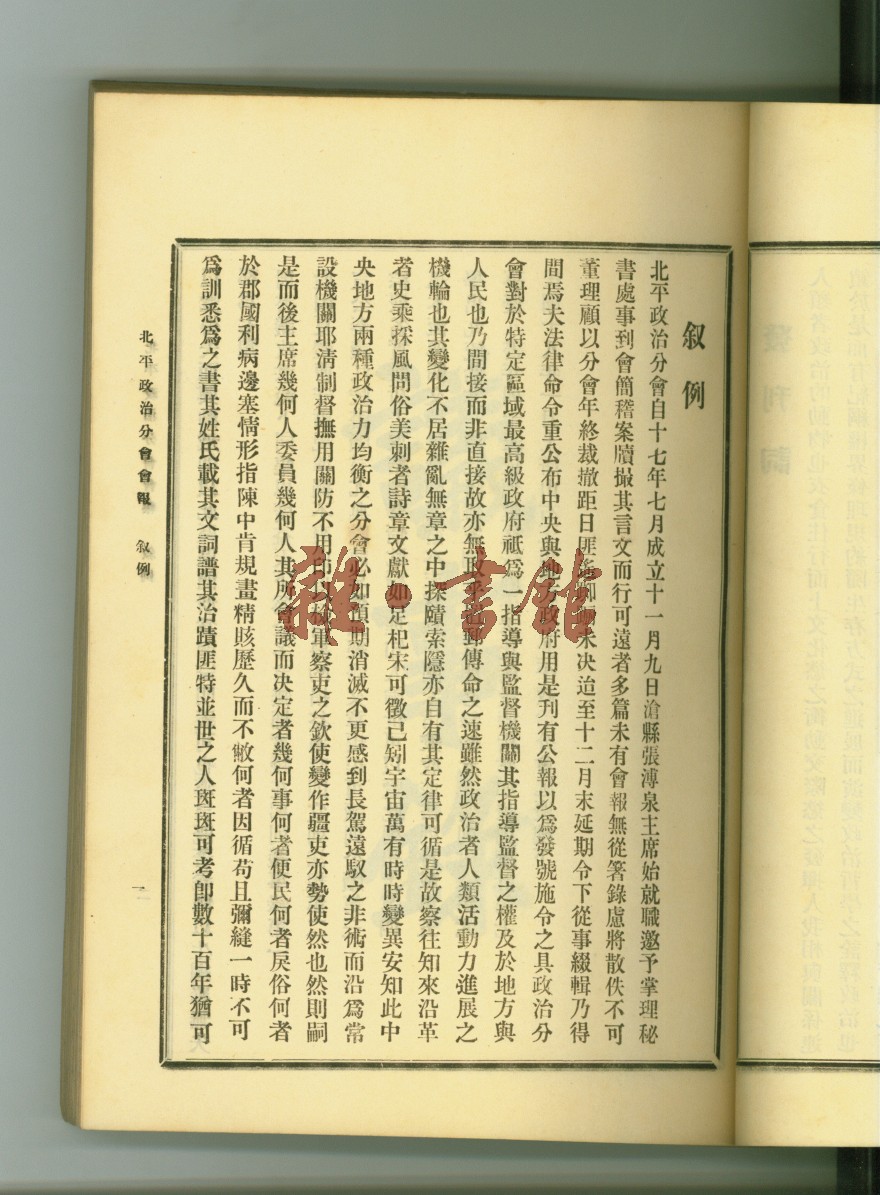 叙例
北平政治分會自十七年七月成立十一月九日滄縣張溥泉主席始就職邀予掌理秘
書處事到會簡稽案牘撮其言文而行可遠者多篇未有會報無從箸錄慮將散佚不可
董理顧以分會年終裁撤距日匪遙 未决迨至十二月末延期令下從事綴輯乃得
間焉夫法律命令重公布中央與地方政府用是刊有公報以爲發號施令之具政治分
會對於特定區域最高級政府祇爲一指導與監督機關其指導監督之權及於地方與
人民也乃間接而非直接故亦無取乎 郵傳命之速雖然政治者人類活動力進展之
機輪也其變化不居雜亂無章之中探賾索隱亦自有其定律可循是故察往知來沿革
者史乘採風問俗美刺者詩章文獻如足杞宋可徵己矧宇宙萬有時時變異安知此中
央地方兩種政治力均衡之分會必如預期消滅不更感到長駕遠馭之非術而沿爲常
設機關耶淸制督撫用關防不用印以 軍察吏之欽使變作疆吏亦勢使然也然則嗣
是而後主席幾何人委員幾何人其所會議而決定者幾何事何者便民何者戾俗何者
於郡國利病邊塞情形指陳中肯規畫精賅歷久而不敝何者因循苟且彌縫一時不可
爲訓悉爲之書其姓氏載其文詞譜其治蹟匪特並世之人斑斑可考卽數十百年猶可
北平政治分會會報 叙例
一
雜·書館